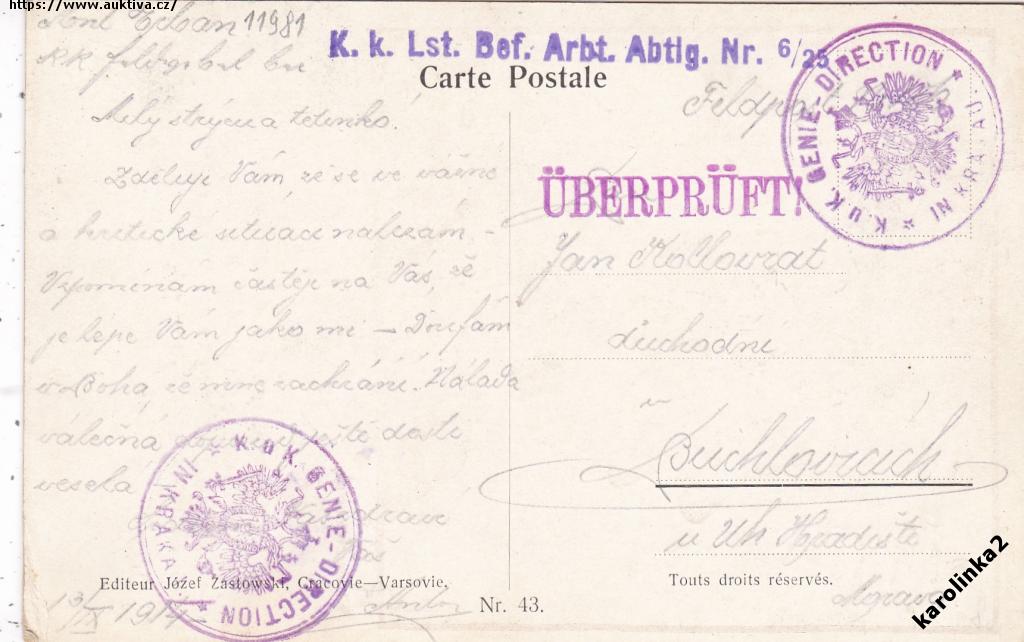 https://www.auktiva.cz/
11981
K. k. Lst. Bef. Arbt. Abtlg. Nr. 6/25
Carte Postale
Milý strýcu a tetinko.
Zděluji Vám, že se ve vážné
a kritické situaci nalezám. –
Vzpomínám častěji na Vás, že
je lépe Vám jako mě – Doufám
v Boha, že mne zachrání. Nálada
válečná ještě dosti
veselá
13/IX 1914
K.U.K. GENIE-DIRECTION * IN KRAKAU *
Editeur Józef Zastowski, Cracovie—Varsovie.
Nr. 43.
Feldpost
K.U.K. GENIE-DIRECTION * IN KRAKAU *
ÜBERPRÜFT!
Jan Kollowrat
důchodní
v
Buchlovicích
u Uh Hradiště
Morava
Touts droits réservés.
karolinka2